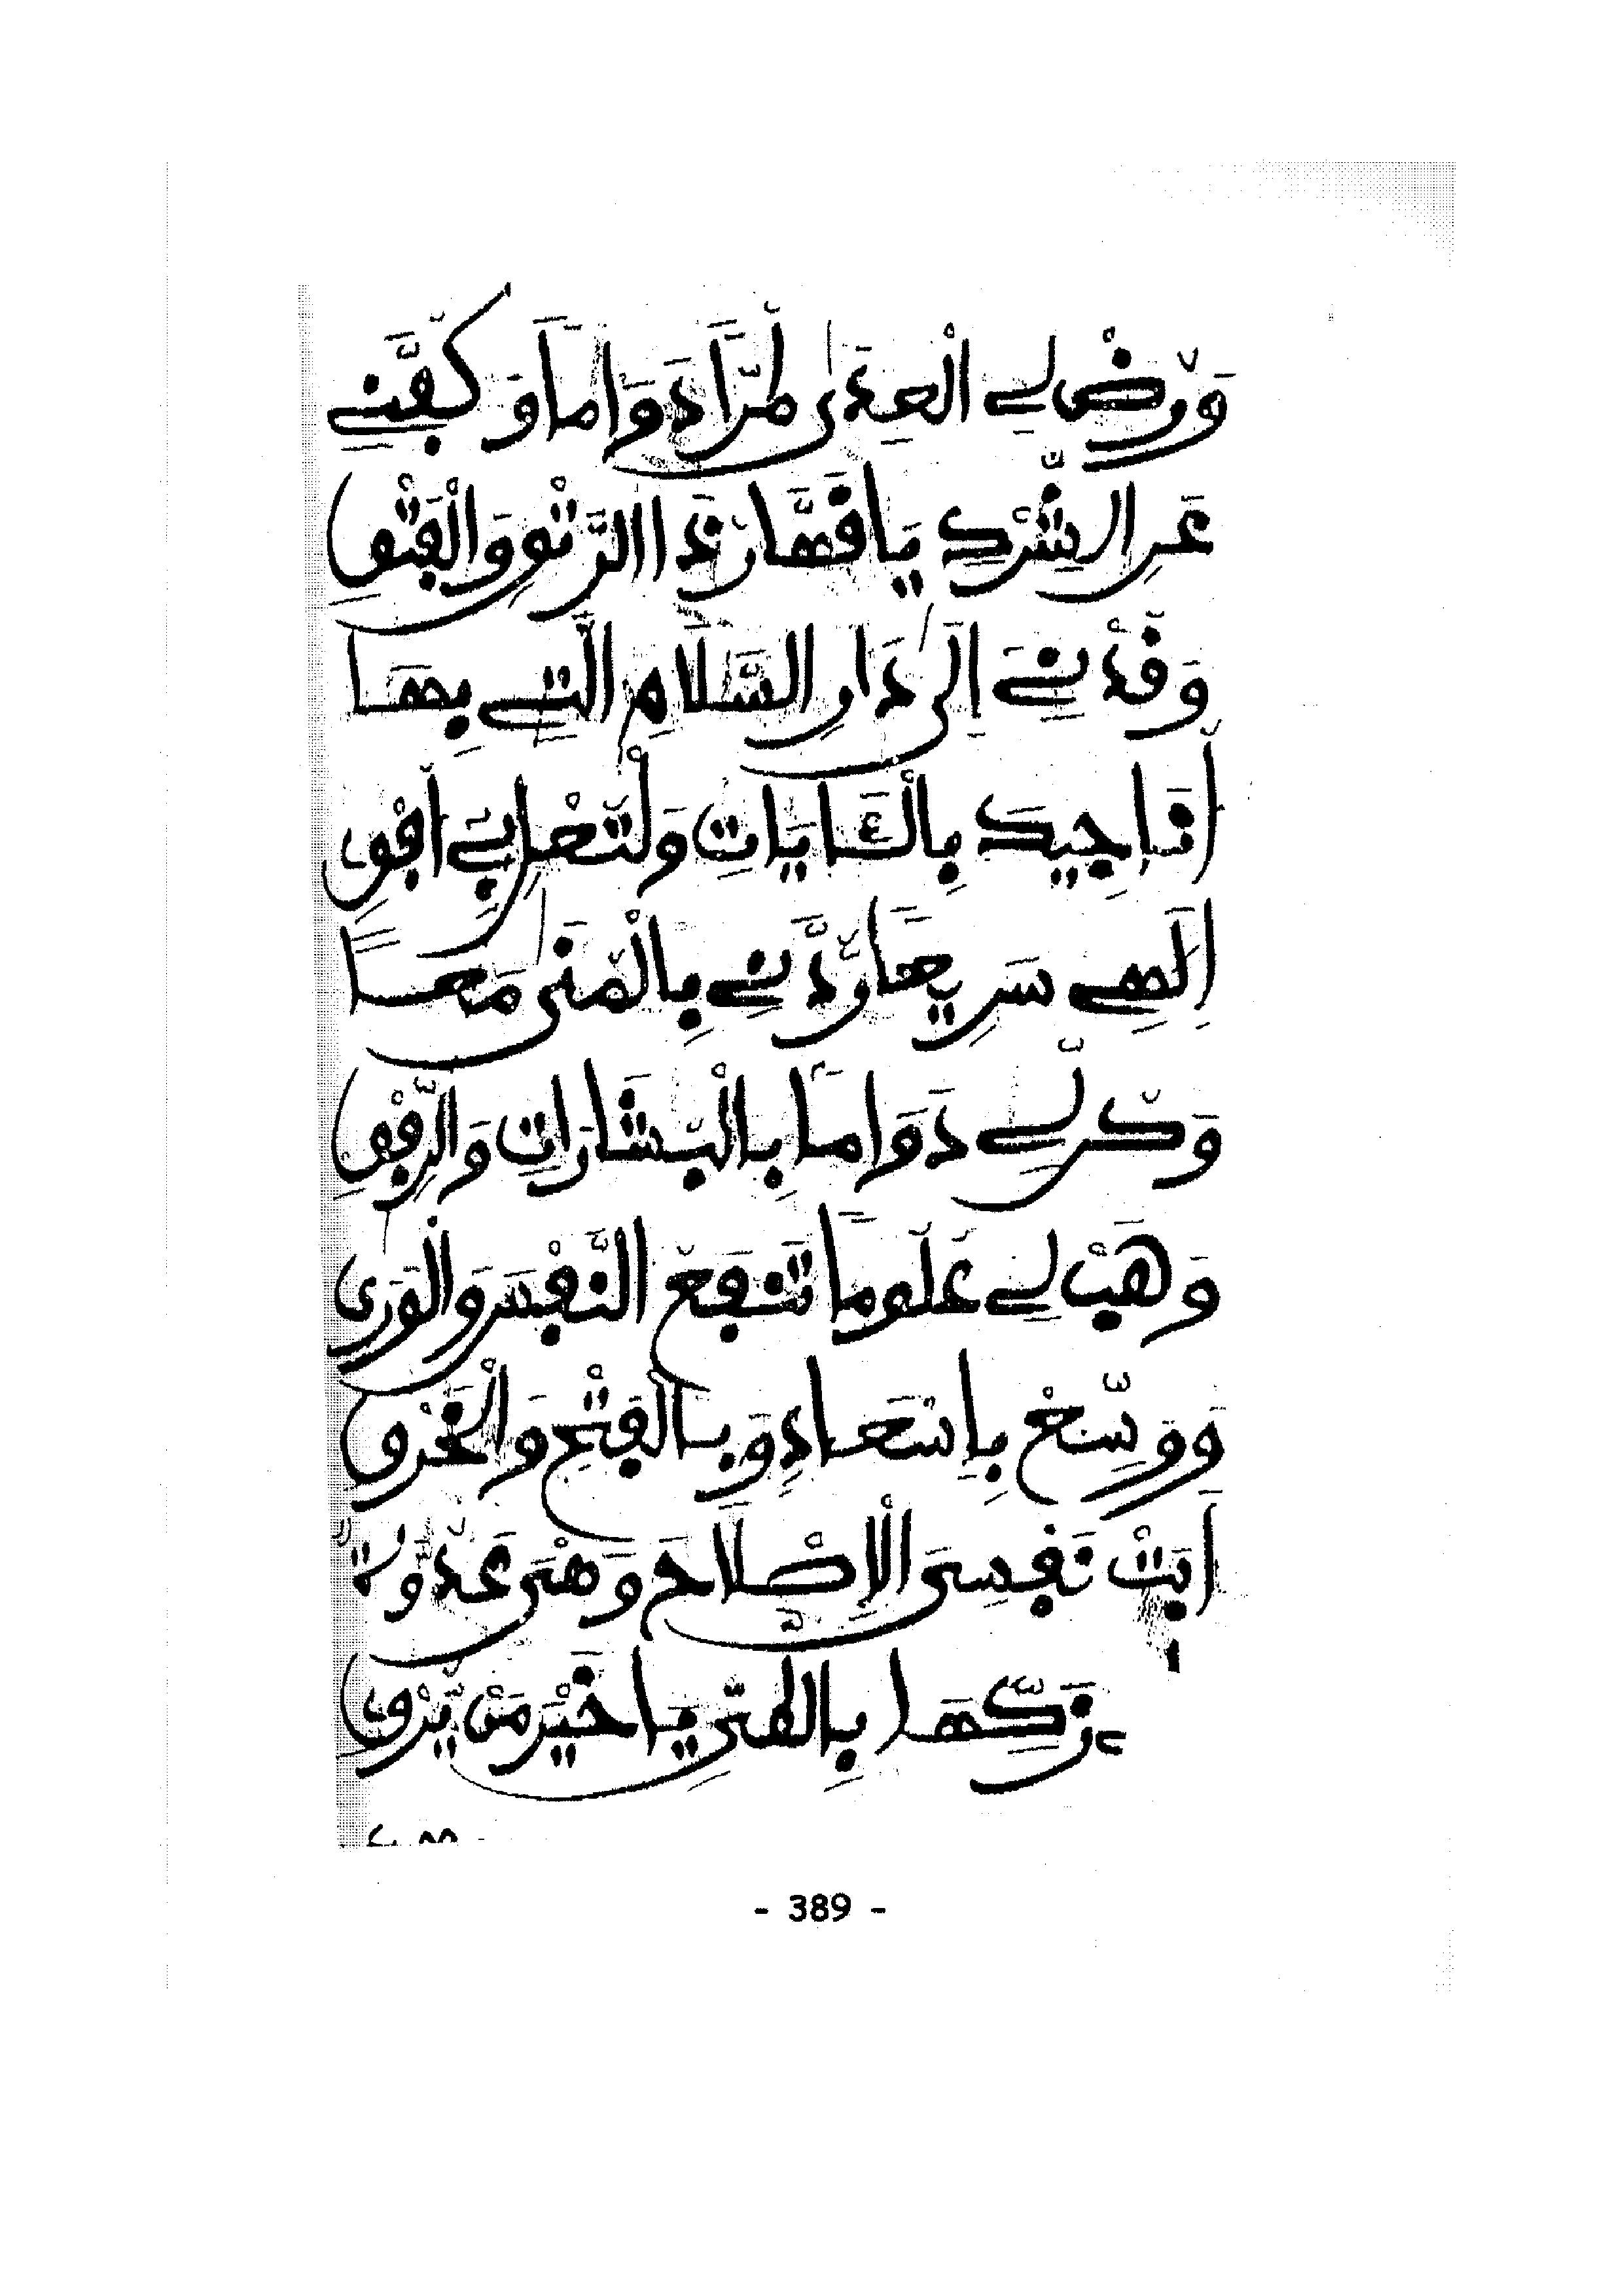 وَرُضْ لِي الْعِدَى طُرًّا دَوَامًا وَكُفَّنِي
عَنِ الشِّرْكِ يَا قَهَّارُ ذَا الرَّتْقِ وَالْفَتْقِ
وَقُدْنِي إِلَى دَارِ السَّلَامِ الَّتِي بِهَا
أُنَاجِيكَ بِالْآيَاتِ وَلْتَحْرُ بِي أُفْقِي
إِلَهِي سَرِيعًا رُدَّنِي بِالْمُنَى مَعًا
وَكُنْ لِي دَوَامًا بِالْبِشَارَاتِ وَالرِّفْقِ
وَهَبْ لِي عُلُومًا تَنْفَعُ النَّفْسَ وَالْوَرَى
وَوَسِّعْ بِإِسْعَادٍ وَبِالْفَتْحِ وَالْخَرْقِ
أَبَتْ نَفْسِيَ الْإِصْلَاحَ وَهْيَ عَدُوَّتِي
فَزَكِّهَا بِالْهَنِي يَا خَيْرَ مَنْ يُرْقِي
- 389 -